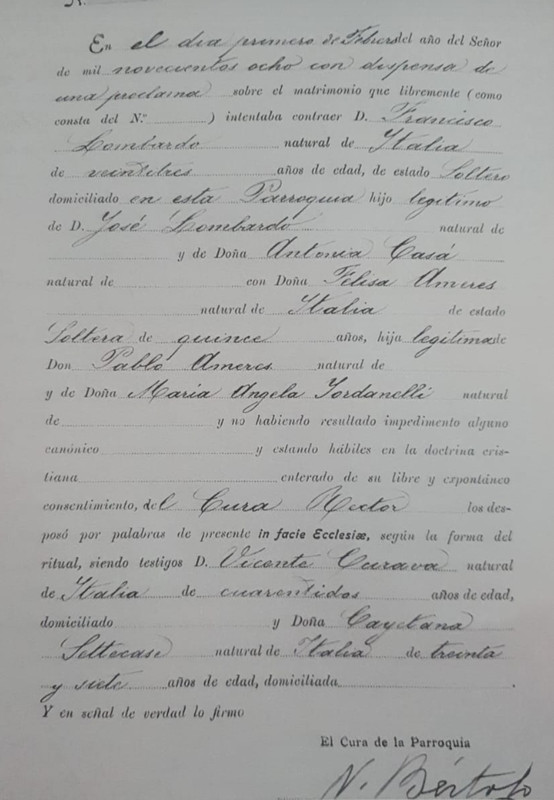 En el dia primero de Febrero del año del Señor
de mil novecientos ocho con dispensa de
una proclama sobre el matrimonio que libremente (como
consta del N.º ) intentaba contraer D. Francisco
Lombardo natural de Italia
de veintitres años de edad, de estado Soltero
domiciliado en esta Parroquia hijo legitimo
de D. José Lombardo natural de
y de Doña Antonia Casá
natural de con Doña Felisa Ameres
natural de Italia de estado
Soltera de quince años, hija legitima de
Don Pablo Ameres natural de
y de Doña Maria Angela Iordanelli natural
de y no habiendo resultado impedimento alguno
canónico y estando hábiles en la doctrina cris-
tiana enterado de su libre y expontáneo
consentimiento, el Cura Rector los des-
posó por palabras de presente in facie Ecclesiæ, según la forma del
ritual, siendo testigos D. Vicente Curava natural
de Italia de cuarentidos años de edad,
domiciliado y Doña Cayetana
Settecasi natural de Italia de treinta
y siete años de edad, domiciliada
Y en señal de verdad lo firmo
El Cura de la Parroquia
N. Bértolo